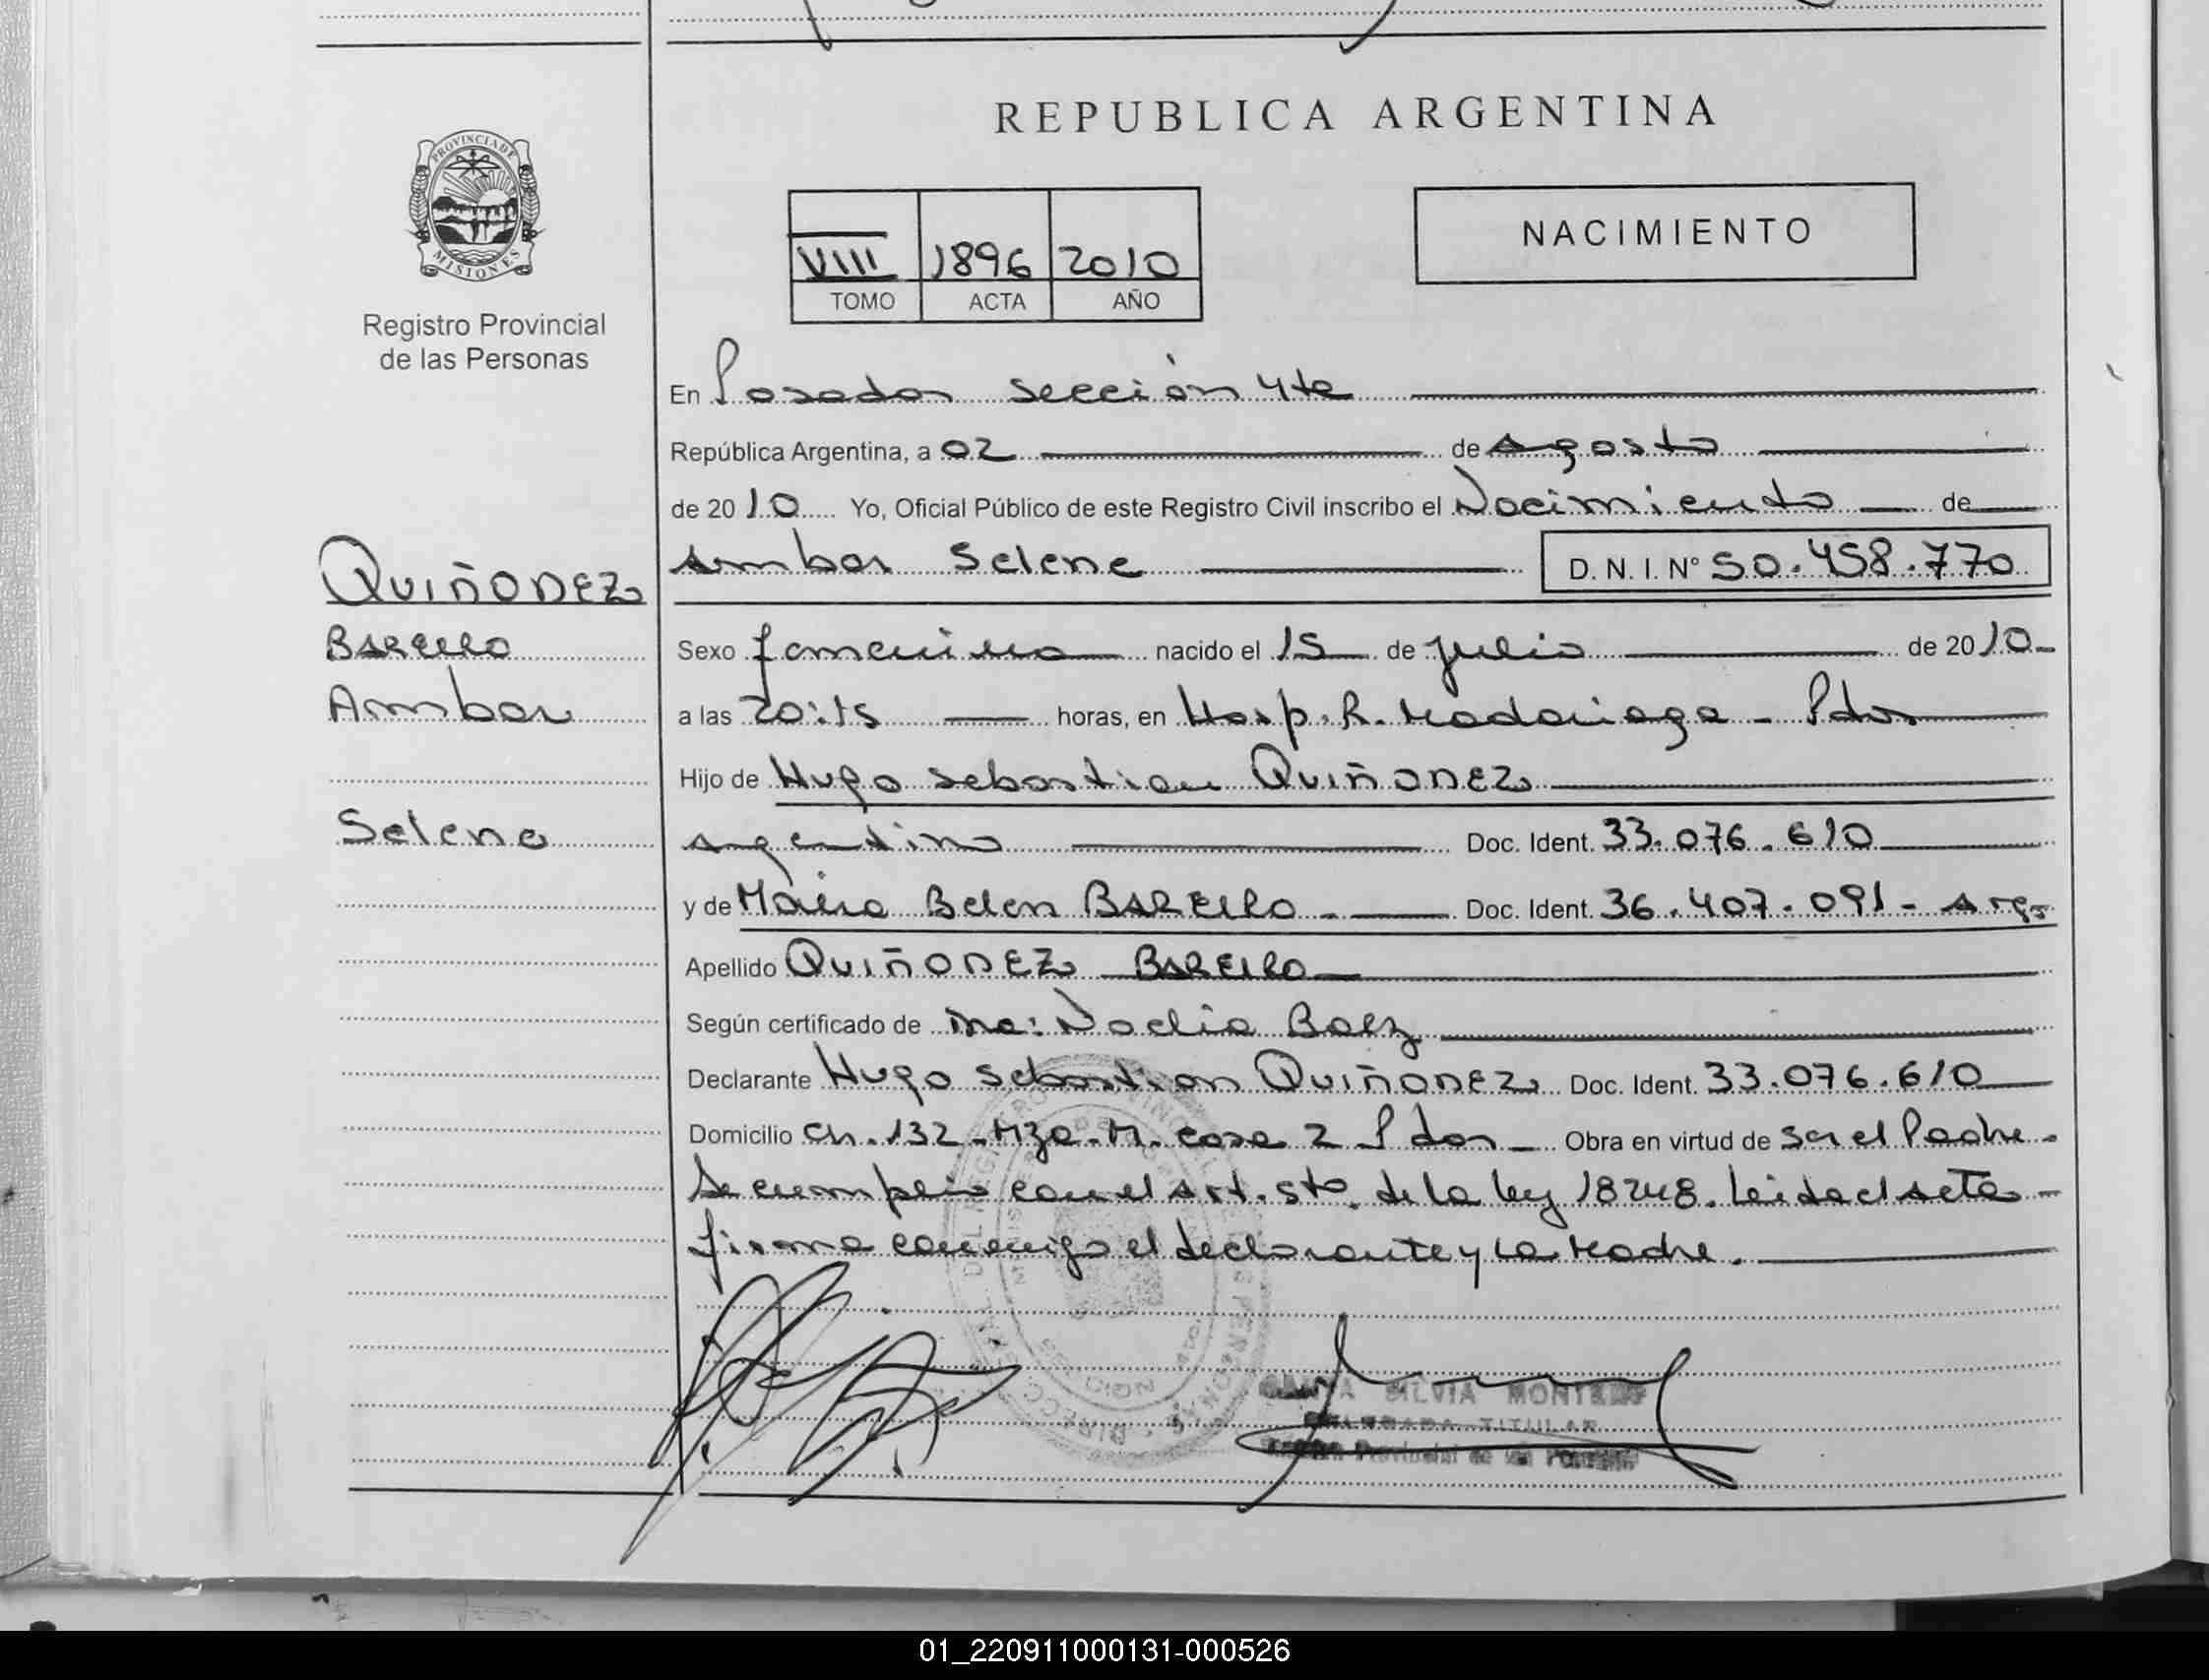 REPUBLICA ARGENTINA
PROVINCIA DE
MISIONES
Registro Provincial
de las Personas
VIII 1896 2010
TOMO ACTA AÑO
NACIMIENTO
En Posadas sección 4ta
República Argentina, a 02 de Agosto
de 2010 Yo, Oficial Público de este Registro Civil inscribo el Nacimiento de
Ambar Selene D.N.I. Nº 50.458.770
QUIÑONEZ
BAREIRO
Ambar
Selene
Sexo femenino nacido el 15 de julio de 2010-
a las 20:15 horas, en Hosp. R. Madariaga - Pdas
Hijo de Hugo Sebastian QUIÑONEZ
argentino Doc. Ident. 33.076.610
y de Maira Belen BAREIRO - Doc. Ident. 36.407.091 - Arg.
Apellido QUIÑONEZ BAREIRO
Según certificado de Noelia Baez
Declarante Hugo Sebastian QUIÑONEZ Doc. Ident. 33.076.610
Domicilio Ch. 132 - Mza - M. casa 2 Pdas - Obra en virtud de ser el Padre.
Se cumplio con el Art. 5to. de la ley 18248. Leida el acta -
firma conmigo el declarante y la Madre.
SILVIA
TITULAR
Provincial de las
01_220911000131-000526